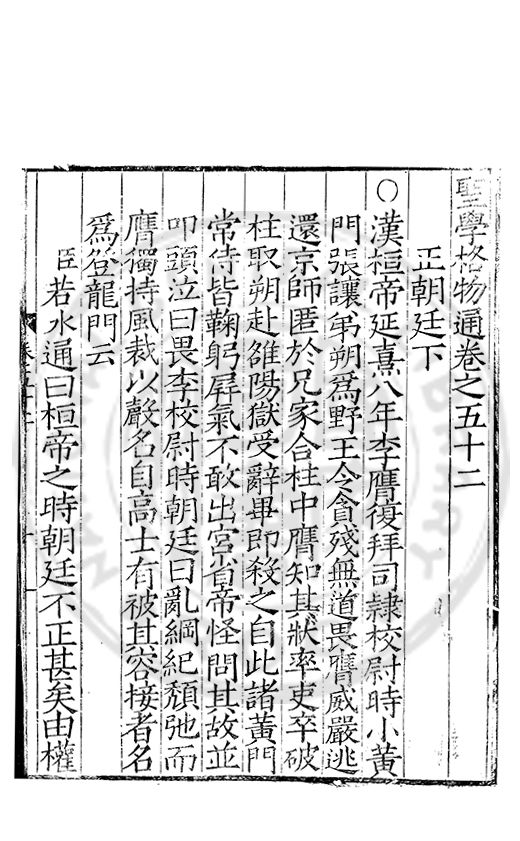 聖學格物通卷之五十二
正朝廷下
○漢桓帝延熹八年李膺復拜司隷校尉時小黃
門張讓弟朔爲野王令貪殘無道畏膺威嚴逃
還京師匿於兄家合柱中膺知其狀率吏卒破
柱取朔赴雒陽獄受辭畢即殺之自此諸黃門
常侍皆鞠躬屏氣不敢出宮省帝怪問其故並
叩頭泣曰畏李校尉時朝廷日亂綱紀頹弛而
膺獨持風裁以聲名自高士有被其容接者名
爲登龍門云
臣若水通曰桓帝之時朝廷不正甚矣由權